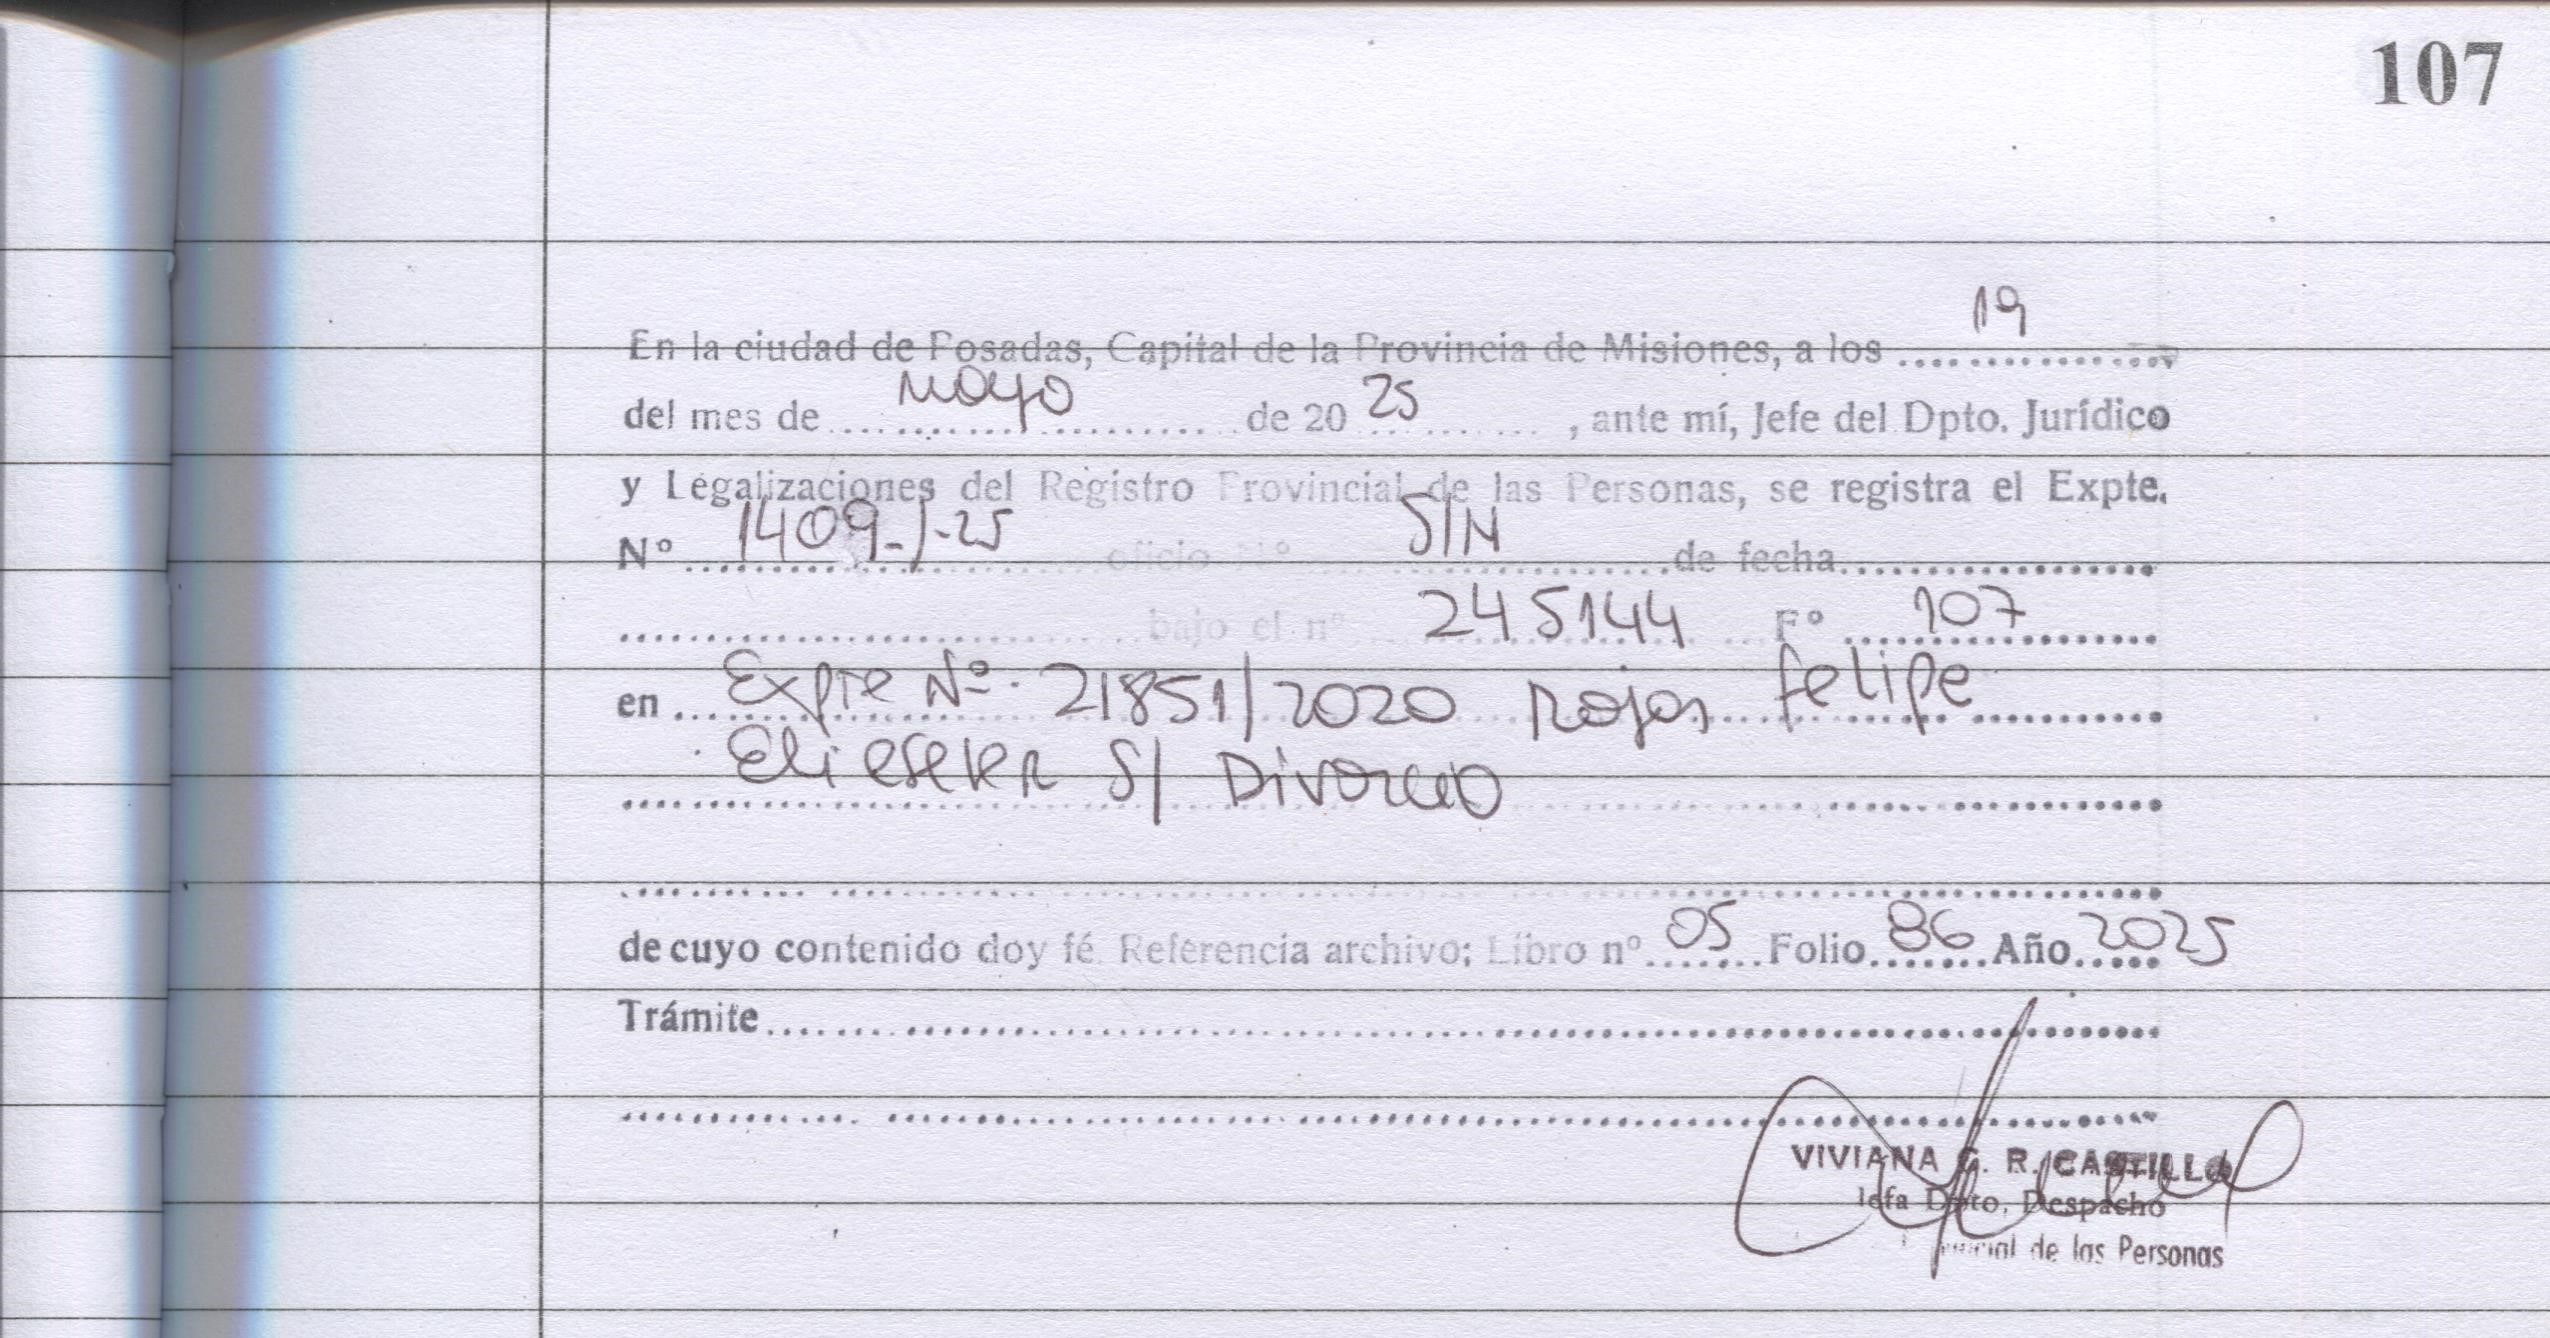 107
En la ciudad de Posadas, Capital de la Provincia de Misiones, a los 19
del mes de mayo de 2025, ante mí, Jefe del Dpto. Jurídico
y Legalizaciones del Registro Provincial de las Personas, se registra el Expte.
Nº 1409-/-25 oficio Nº S/N de fecha
bajo el nº 245144 Fº 107
en Expte Nº 21851/2020 Rojas Felipe
Elieser S/ Divorcio
de cuyo contenido doy fé. Referencia archivo; Libro nº 05 Folio 86 Año 2025
Trámite
VIVIANA G. R. CASTILLO
Jefa Dpto. Despacho
de las Personas